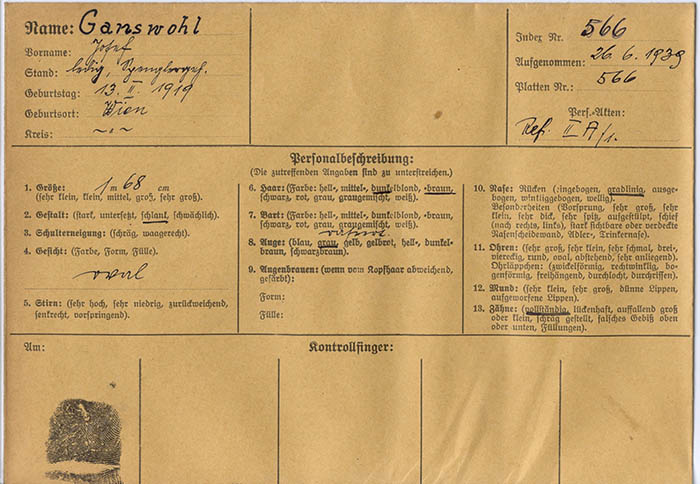 Name: Ganswohl
Vorname: Josef
Stand: ledig, Spenglergeh.
Geburtstag: 13. II. 1919
Geburtsort: Wien
Kreis: -.-
Index Nr. 566
Aufgenommen: 26. 6. 1939
Platten Nr.: 566
Pers.-Akten:
Ref. II A/1.
Personalbeschreibung:
(Die zutreffenden Angaben sind zu unterstreichen.)
1. Größe: 1 m 68 cm
(sehr klein, klein, mittel, groß, sehr groß).
2. Gestalt: (stark, untersetzt, schlank, schwächlich).
3. Schulterneigung: (schräg, waagerecht).
4. Gesicht: (Farbe, Form, Fülle).
oval
5. Stirn: (sehr hoch, sehr niedrig, zurückweichend,
senkrecht, vorspringend).
6. Haar: (Farbe: hell-, mittel-, dunkelblond, -braun,
schwarz, rot, grau, graugemischt, weiß).
7. Bart: (Farbe: hell-, mittel-, dunkelblond, -braun,
schwarz, rot, grau, graugemischt, weiß).
rasiert
8. Auge: (blau, grau, gelb, gelbrot, hell-, dunkel-
braun, schwarzbraun).
9. Augenbrauen: (wenn vom Kopfhaar abweichend,
gefärbt):
Form:
Fülle:
10. Nase: Rücken (eingebogen, gradlinig, ausge-
bogen, winkliggebogen, wellig).
Besonderheiten (Vorsprung, sehr groß, sehr
klein, sehr dick, sehr spitz, aufgestülpt, schief
(nach rechts, links), stark sichtbare oder verdeckte
Nasenscheidewand, Adler-, Trinkernase).
11. Ohren: (sehr groß, sehr klein, sehr schmal, drei-,
viereckig, rund, oval, abstehend, sehr anliegend).
Ohrläppchen: (zwickelförmig, rechtwinklig, bo-
genförmig, freihängend, durchlocht, durchrissen).
12. Mund: (sehr klein, sehr groß, dünne Lippen,
aufgeworfene Lippen).
13. Zähne: (vollständig, lückenhaft, auffallend groß
oder klein, schräg gestellt, falsches Gebiß oben
oder unten, Füllungen).
Am:
Kontrollfinger: